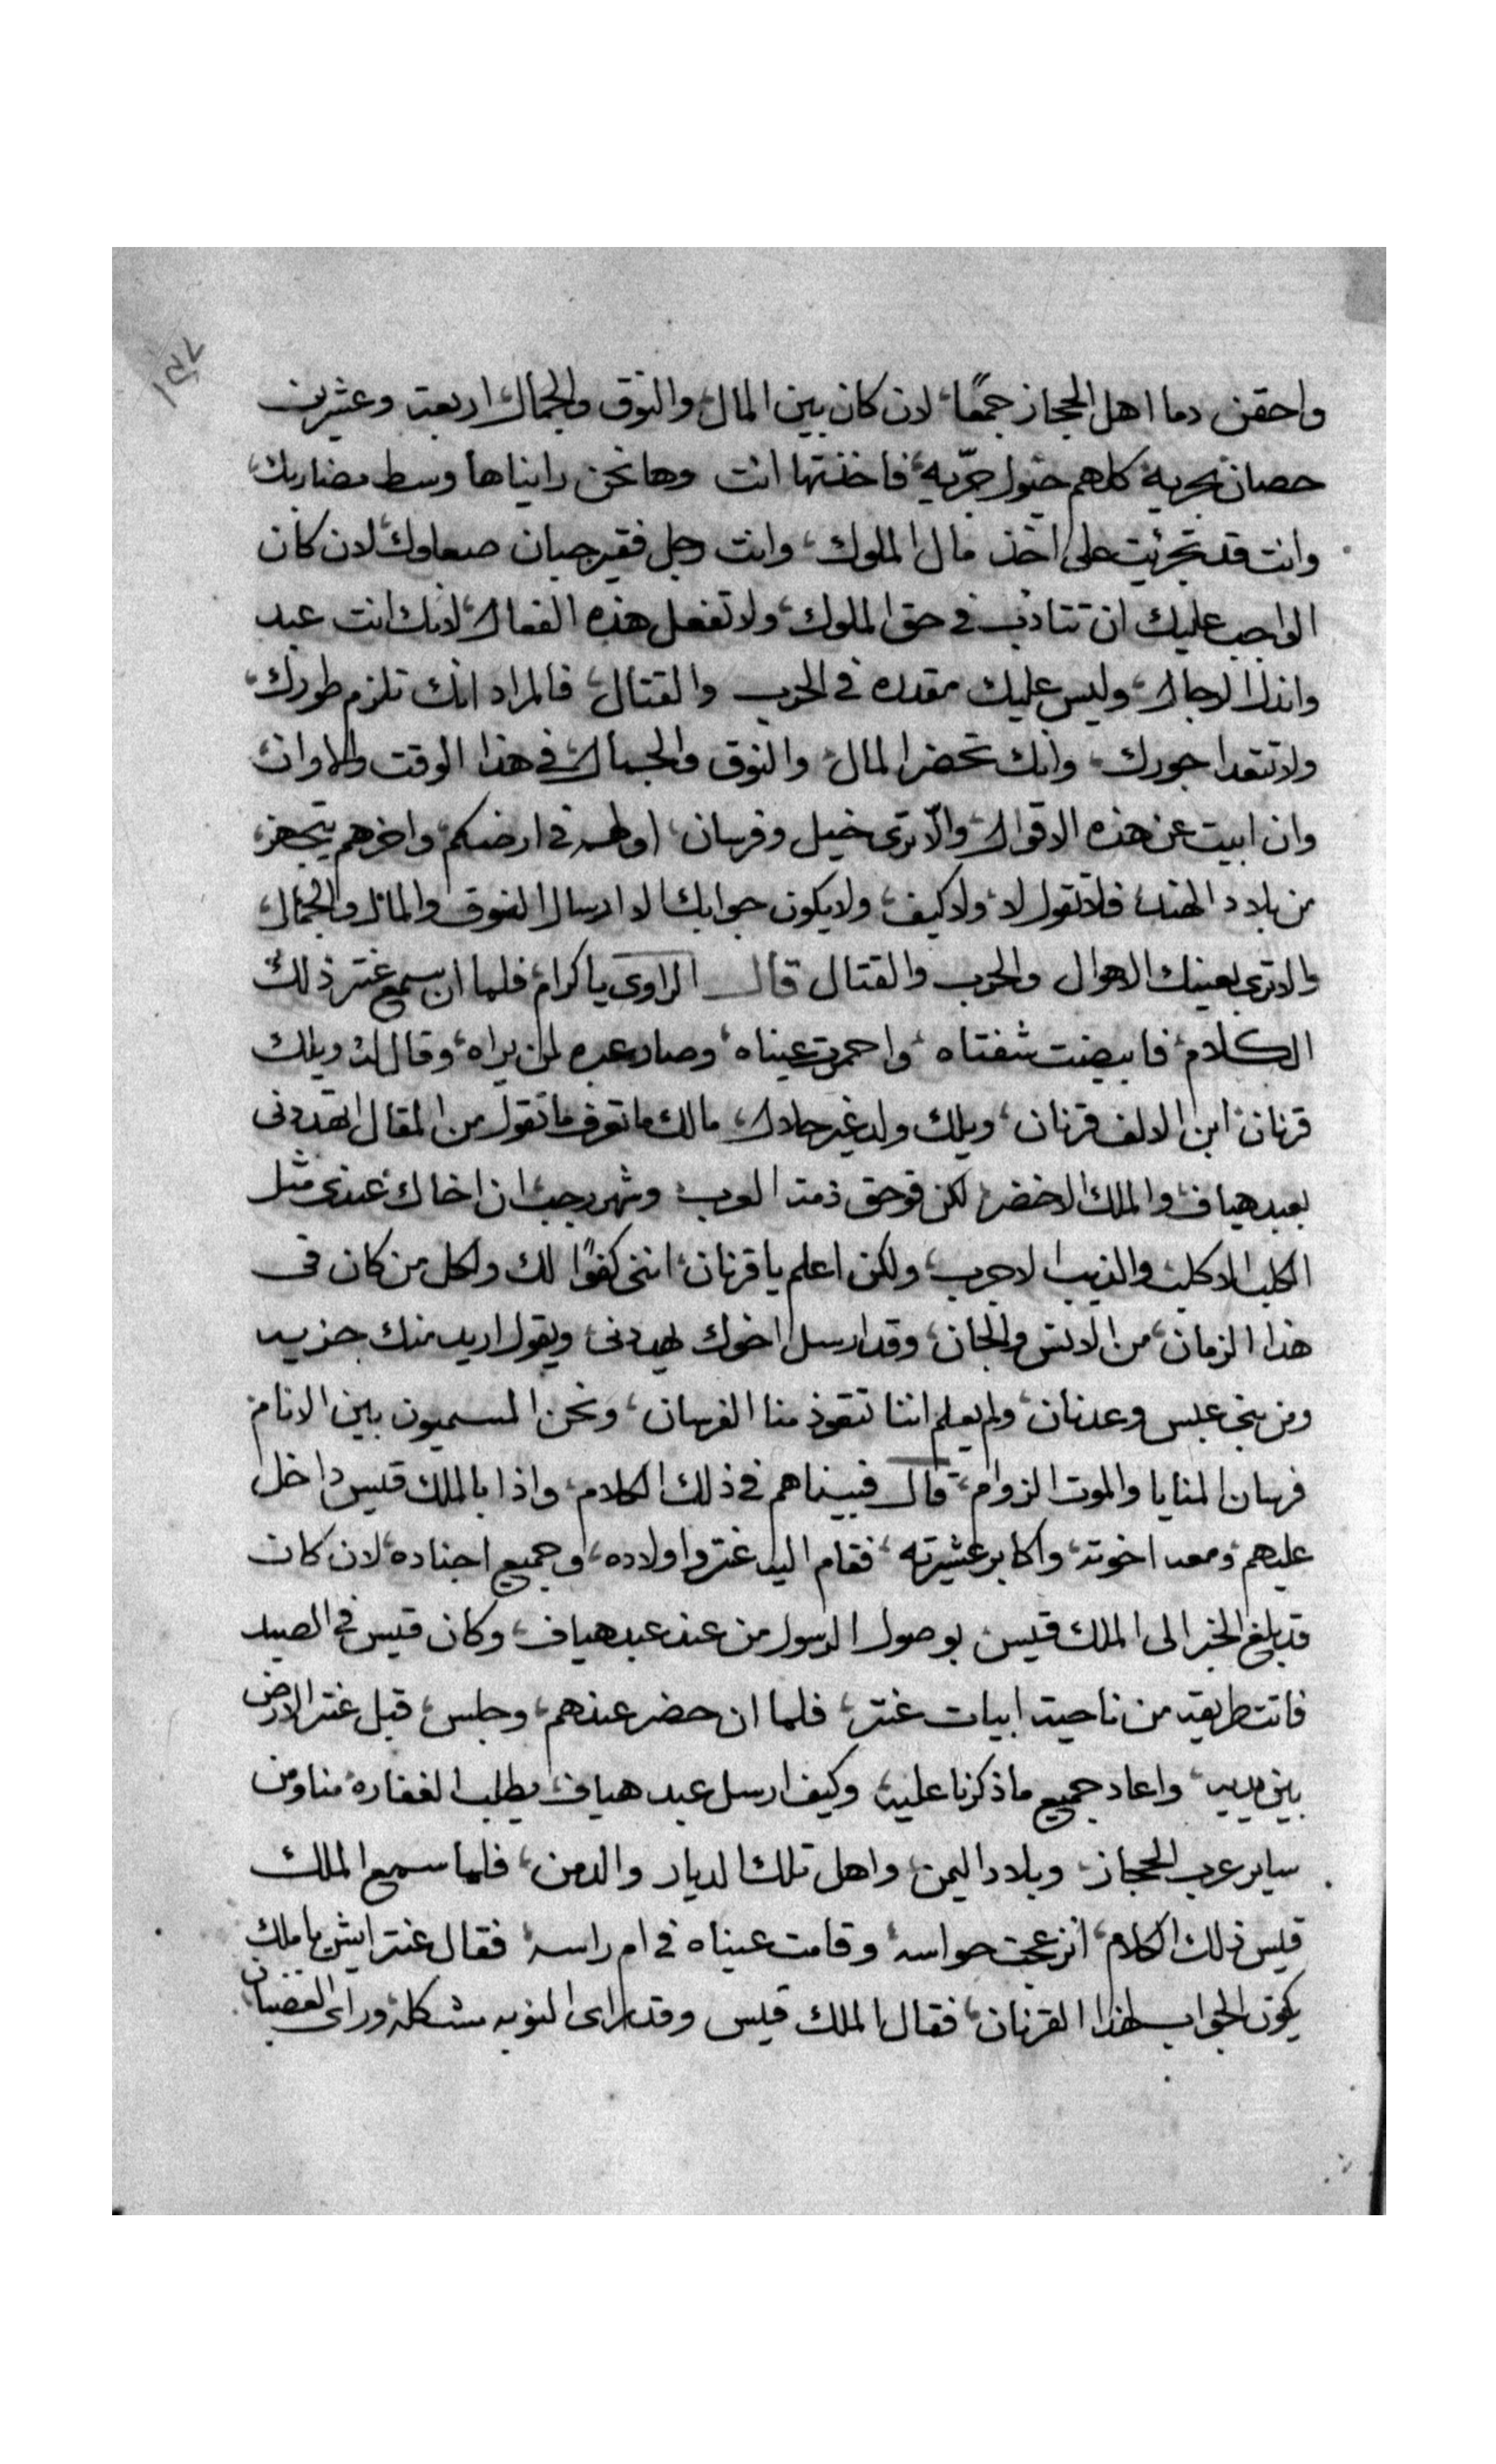 واحقن دما اهل الحجاز جمعًا، لان كان بين المال، والنوق والجمال، اربعة وعشرين
حصان بحرية، كلهم خيول جرّيه، فاخذتها انت وها نحن رايناها وسط مضاربك،
وانت قد تجرئيت على اخذ مال الملوك، وانت رجل فقير جبان صعلوك، لان كان
الواجب عليك ان تتادب في حق الملوك، ولا تفعل هذه الفعال، لانك انت عبد
واندل الرجال، وليس عليك مقدره في الحرب والقتال، فالمراد انك تلزم طورك،
ولا تتعدا جورك، وانك تحضر المال، والنوق والجمال، في هذا الوقت والاوان،
وان ابيت عن هذه الاقوال، والّا ترى خيل وفرسان، اولهم في ارضكم، واخرهم يتجهز،
من بلاد الهند، فلا تقول لا، ولا كيف، ولا يكون جوابك الا ارسال النوق والمال والجمال،
والا ترى بعينك الاهوال والحرب والقتال قال الراوي يا كرام، فلما ان سمع عنتر ذلك
الكلام، فابيضت شفتاه، واحمرت عيناه، وصار عبره لمن يراه، وقال له ويلك
قرنان، ابن الالف قرنان، ويلك ولد غير حلال، مالك ما تعرف ما تقول من المقال، اتهددني
بعبد هياف، والملك الاخضر، لكن فوحق ذمة العرب، وشهر رجب، ان اخاك عندي مثل
الكلب الاكلب، والذيب الاجرب، ولكن اعلم يا قرنان، انني كفوًا لك ولكل من كان في
هذا الزمان، من الانس والجان، وقد ارسل اخوك يهددني، ويقول اريد منك جزيه
ومن بني عبس وعدنان، ولم يعلم اننا تتعوذ منا الفرسان، ونحن المسميون بين الانام،
فرسان المنايا والموت الزوام، قال فبيناهم في ذلك الكلام، واذا بالملك قيس داخل
عليهم، ومعه اخوته، واكابر عشيرته، فقام اليه عنتر واولاده، وجميع اجناده، لان كان
قد بلغ الخبر الى الملك قيس، بوصول الرسول من عند عبد هياف، وكان قيس في الصيد
فاتت طريقه من ناحية ابيات عنتر، فلما ان حضر عندهم، وجلس، قبل عنتر الارض
بين يديه، واعاد جميع ما ذكرنا عليه، وكيف ارسل عبد هياف، يطلب الغفاره، منا ومن
ساير عرب الحجاز، وبلاد اليمن، واهل تلك الديار والدمن، فلما سمع الملك
قيس ذلك الكلام، انزعجت حواسه، وقامت عيناه في ام راسه، فقال عنتر ايش يا ملك
يكون الجواب لهذا القرنان، فقال الملك قيس وقد راى النوبه مشكله، وراى الغضبان